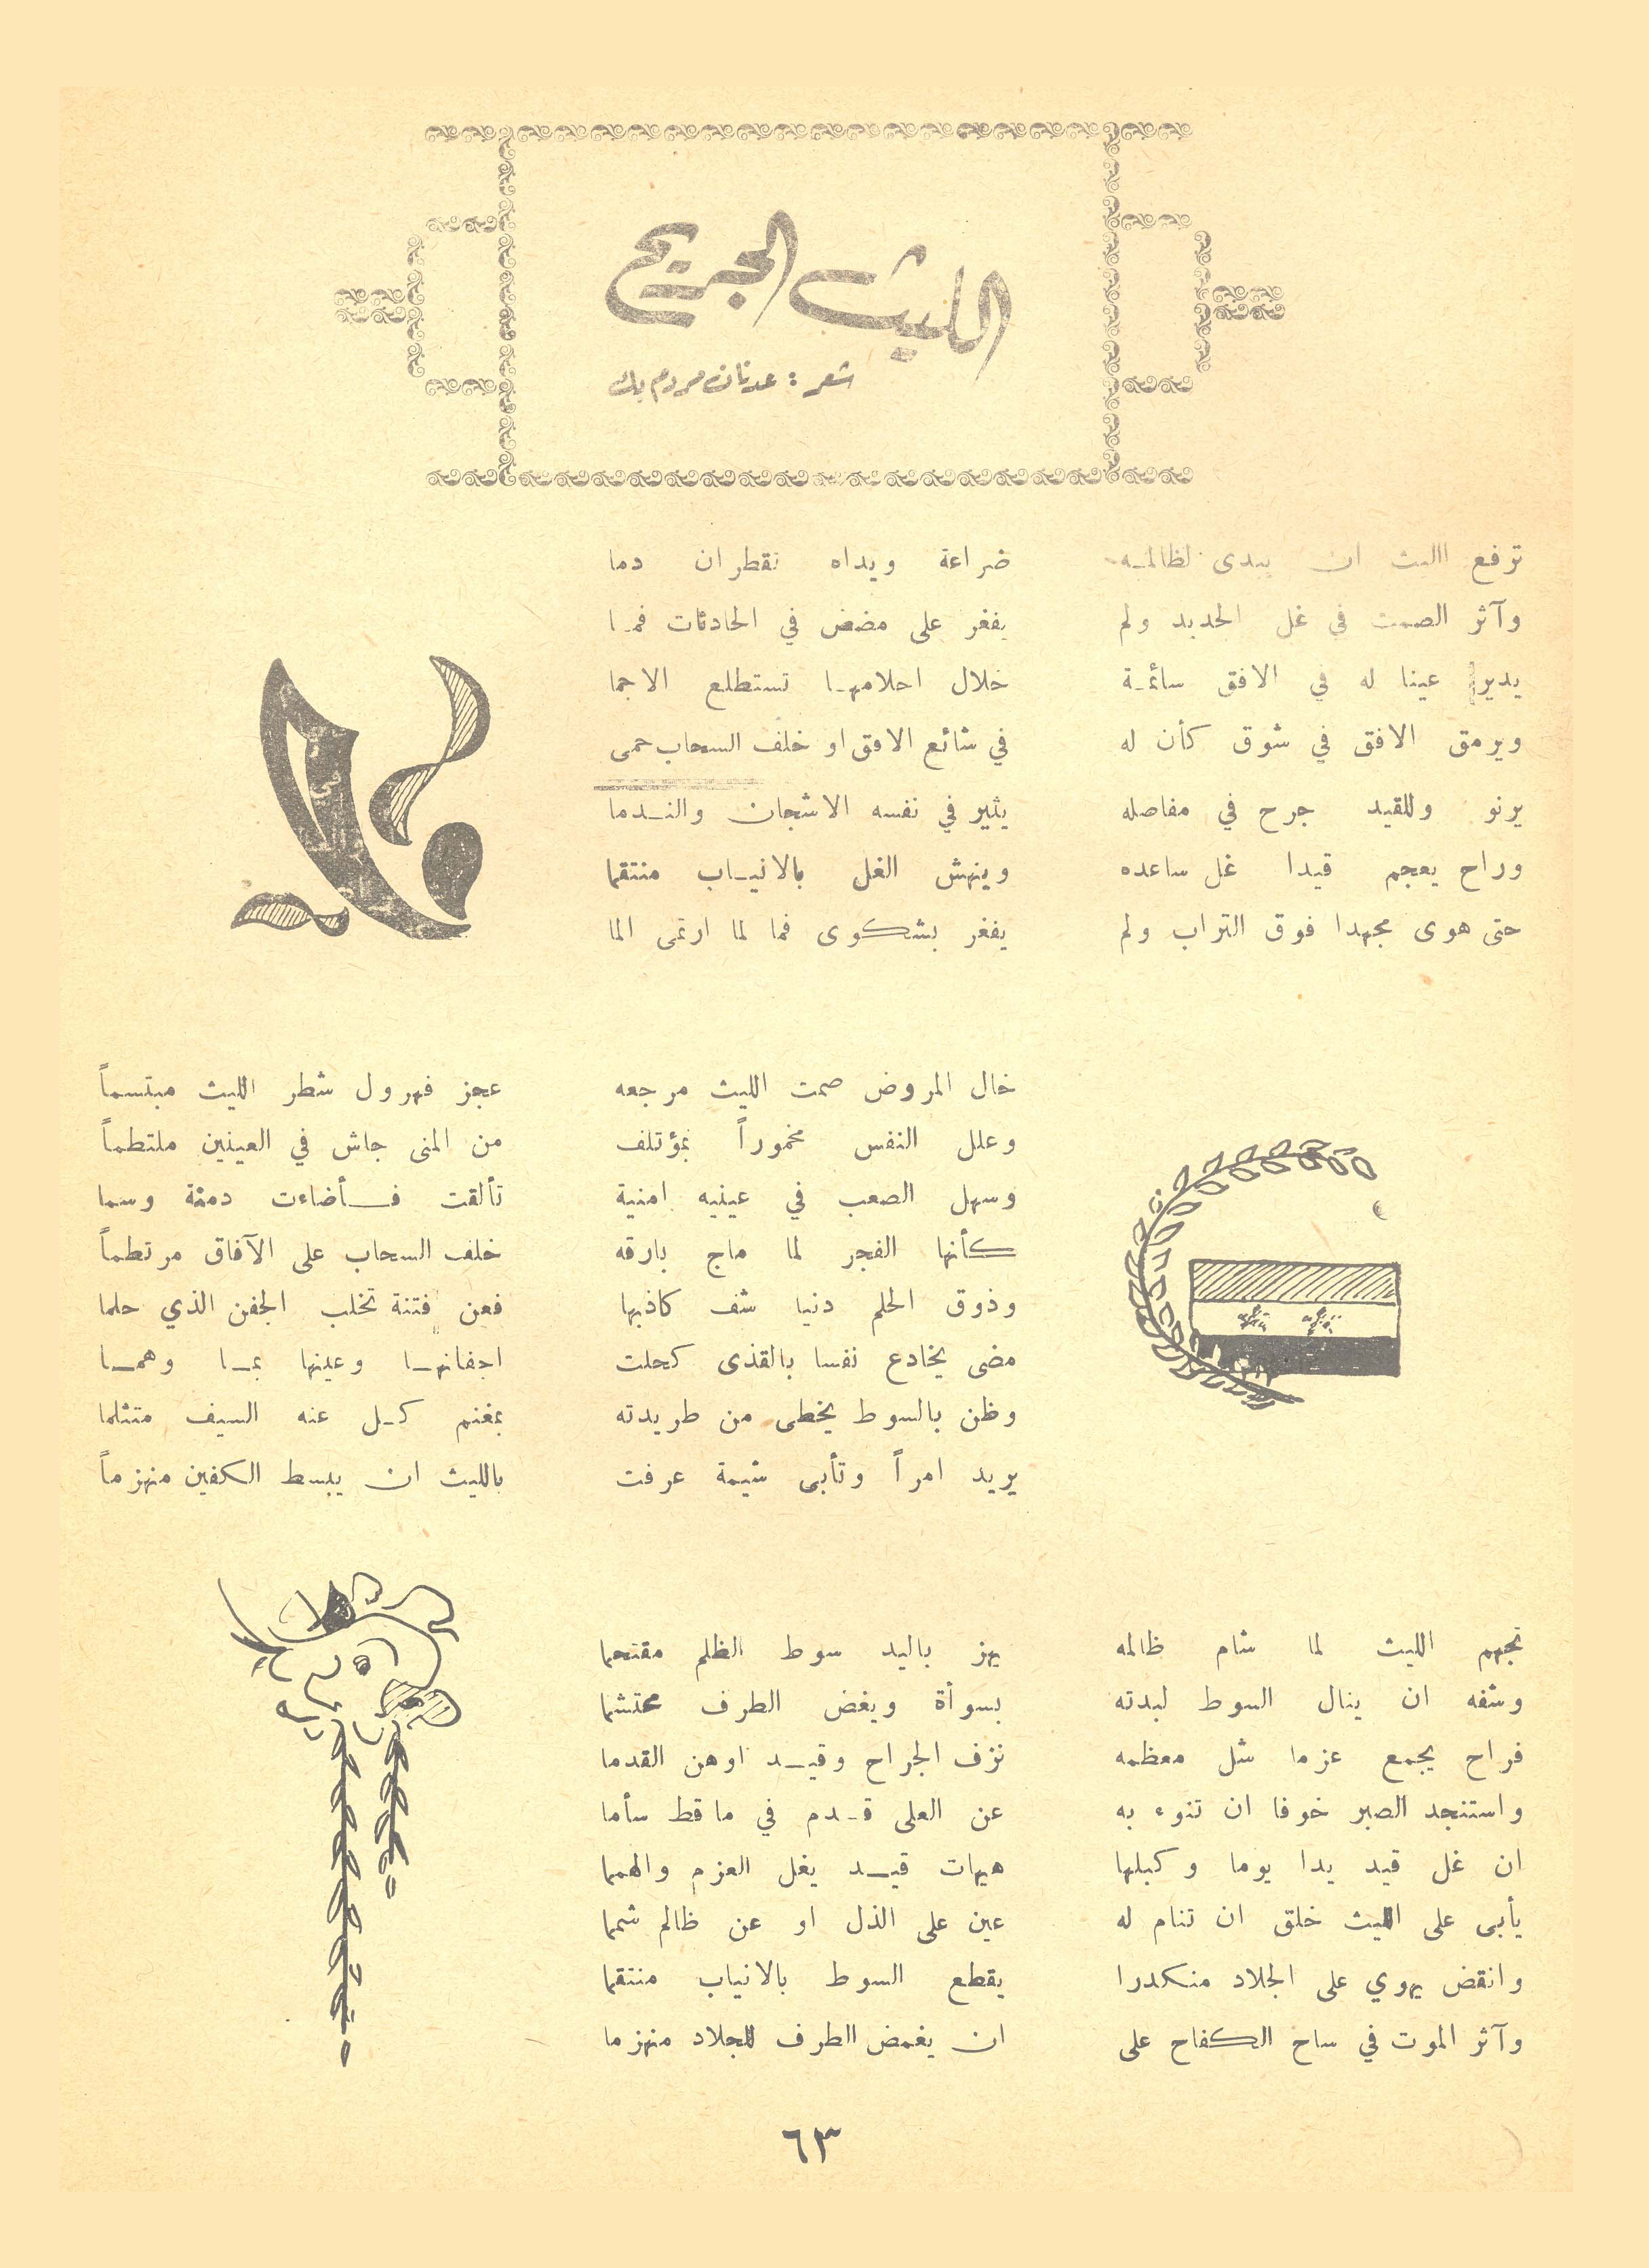 الليث الجريح
شعر : عدنان مردم بك
ترفع الليث ان يبدى لظالمـه ضراعة ويداه تقطران دما
وآثر الصمت في غل الحديد ولم يفغر على مضض في الحادثات فمـا
يدير عينا له في الافق سائمـة خلال احلامهـا تستطلع الاجما
ويرمق الافق في شوق كأن له في شائع الافق او خلف السحاب حمى
يرنو وللقيد جرح في مفاصله يثير في نفسه الاشجان والنـدما
وراح يعجم قيدا غل ساعده وينهش الغل بالانيـاب منتقما
حتى هوى مجهدا فوق التراب ولم يفغر بشكوى فما لما ارتمى الما
خال المروض صمت الليث مرجعه عجز فهرول شطر الليث مبتسماً
وعلل النفس مخموراً بمؤتلف من المنى جاش في العينين ملتطماً
وسهل الصعب في عينيه امنية تألقت فـأضاءت دمثة وسما
كأنها الفجر لما ماج بارقه خلف السحاب على الآفاق مرتطماً
وذوق الحلم دنيا شف كاذبها فعن فتنة تخلب الجفن الذي حلما
مضى يخادع نفسا بالقذى كحلت اجفانهـا وعينها بمـا وهمـا
وظن بالسوط يخطى من طريدته بمغنم كـل عنه السيف متثلما
يريد امراً وتأبى شيمة عرفت بالليث ان يبسط الكفين منهزماً
تجهم الليث لما شام ظالمه يهز باليد سوط الظلم مقتحما
وشفه ان ينال السوط لبدته بسوأة ويغض الطرف محتشما
فراح يجمع عزما شل معظمه نزف الجراح وقيـد اوهن القدما
واستنجد الصبر خوفا ان تنوء به عن العلى قـدم في ما قط سأما
ان غل قيد يدا يوما وكبلها هيهات قيـد يغل العزم والهمما
يأبى على الليث خلق ان تنام له عين على الذل او عن ظالم شمما
وانقض يهوي على الجلاد منكدرا يقطع السوط بالانياب منتقما
وآثر الموت في ساح الكفاح على ان يغمض الطرف للجلاد منهزما
٦٣